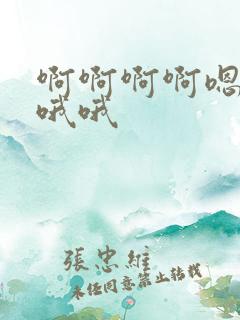 啊啊啊啊嗯
哦哦
張忠維
未任同意禁止转载